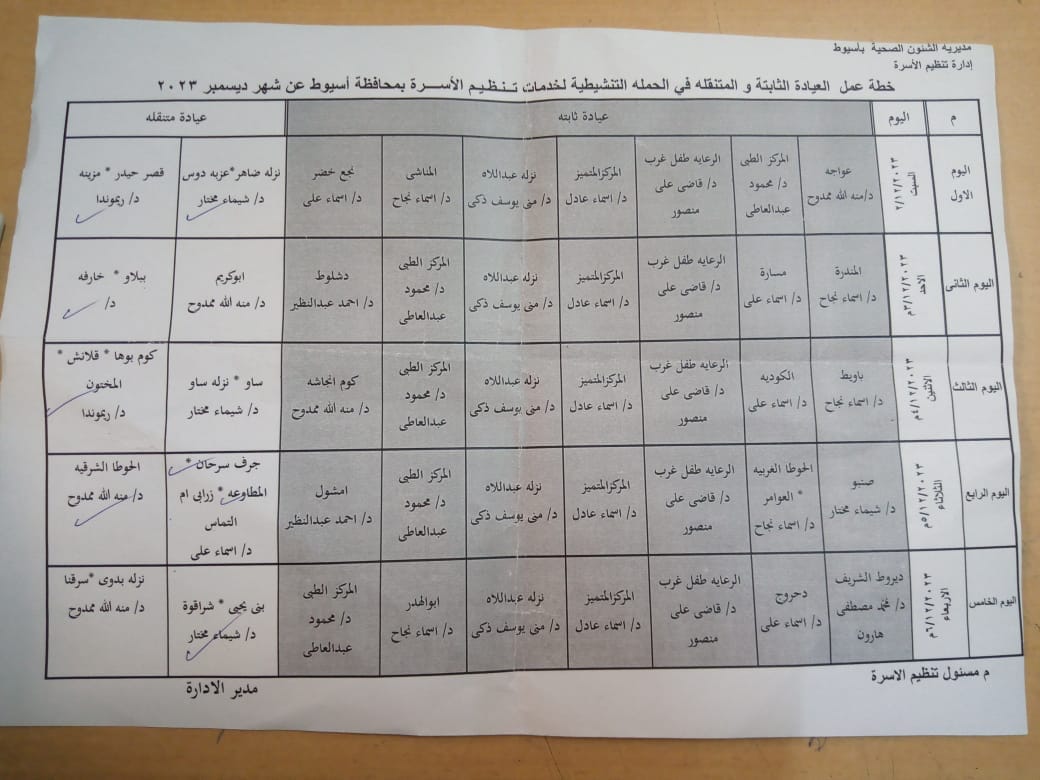 مديريه الشئون الصحية بأسيوط
إدارة تنظيم الأسرة
خطة عمل العيادة الثابتة و المتنقله في الحمله التنشيطية لخدمات تـنـظـيـم الأســـرة بمحافظة أسيوط عن شهر ديسمبر ٢٠٢٣
م اليوم عيادة ثابته عيادة متنقله
اليوم الاول
السبت ٢/١٢/٢٠٢٣
عواجه
د/منه الله ممدوح
المركز الطبى
د/ محمود
عبدالعاطى
الرعايه طفل غرب
د/ قاضى على
منصور
المركزالمتميز
د/ اسماء عادل
نزله عبداللاه
د/ منى يوسف ذكى
المناشى
د/ اسماء نجاح
نجع خضر
د/ اسماء على
نزله ضاهر*عزبه دوس
د/ شيماء مختار
قصر حيدر * مزينه
د/ ريموندا
اليوم الثانى
الاحد ٣/١٢/٢٠٢٣م
المندرة
د/ اسماء نجاح
مسارة
د/ اسماء على
الرعايه طفل غرب
د/ قاضى على
منصور
المركزالمتميز
د/ اسماء عادل
نزله عبداللاه
د/ منى يوسف ذكى
المركز الطبى
د/ محمود
عبدالعاطى
دشلوط
د/ احمد عبدالنظير
ابوكريم
د/ منه الله ممدوح
ببلاو * خارفه
د/
اليوم الثالث
الاثنين ٤/١٢/٢٠٢٣م
باويط
د/ اسماء نجاح
الكوديه
د/ اسماء على
الرعايه طفل غرب
د/ قاضى على
منصور
المركزالمتميز
د/ اسماء عادل
نزله عبداللاه
د/ منى يوسف ذكى
المركز الطبى
د/ محمود
عبدالعاطى
كوم انجاشه
د/ منه الله ممدوح
ساو * نزله ساو
د/ شيماء مختار
كوم بوها * قلانش *
المختون
د/ ريموندا
اليوم الرابع
الثلاثاء ٥/١٢/٢٠٢٣م
صنبو
د/ شيماء مختار
الحوطا الغربيه
* العوامر
د/ اسماء نجاح
الرعايه طفل غرب
د/ قاضى على
منصور
المركزالمتميز
د/ اسماء عادل
نزله عبداللاه
د/ منى يوسف ذكى
المركز الطبى
د/ محمود
عبدالعاطى
امشول
د/ احمد عبدالنظير
جرف سرحان *
المطاوعه * زرابى ام
التماس
د/ اسماء على
الحوطا الشرقيه
د/ منه الله ممدوح
اليوم الخامس
الاربعاء ٦/١٢/٢٠٢٣م
ديروط الشريف
د/ محمد مصطفى
هارون
دحروج
د/ اسماء على
الرعايه طفل غرب
د/ قاضى على
منصور
المركزالمتميز
د/ اسماء عادل
نزله عبداللاه
د/ منى يوسف ذكى
ابوالهدر
د/ اسماء نجاح
المركز الطبى
د/ محمود
عبدالعاطى
بنى يحيى * شراقوة
د/ شيماء مختار
نزله بدوى *سرقنا
د/ منه الله ممدوح
م مسئول تنظيم الاسرة
مدير الادارة